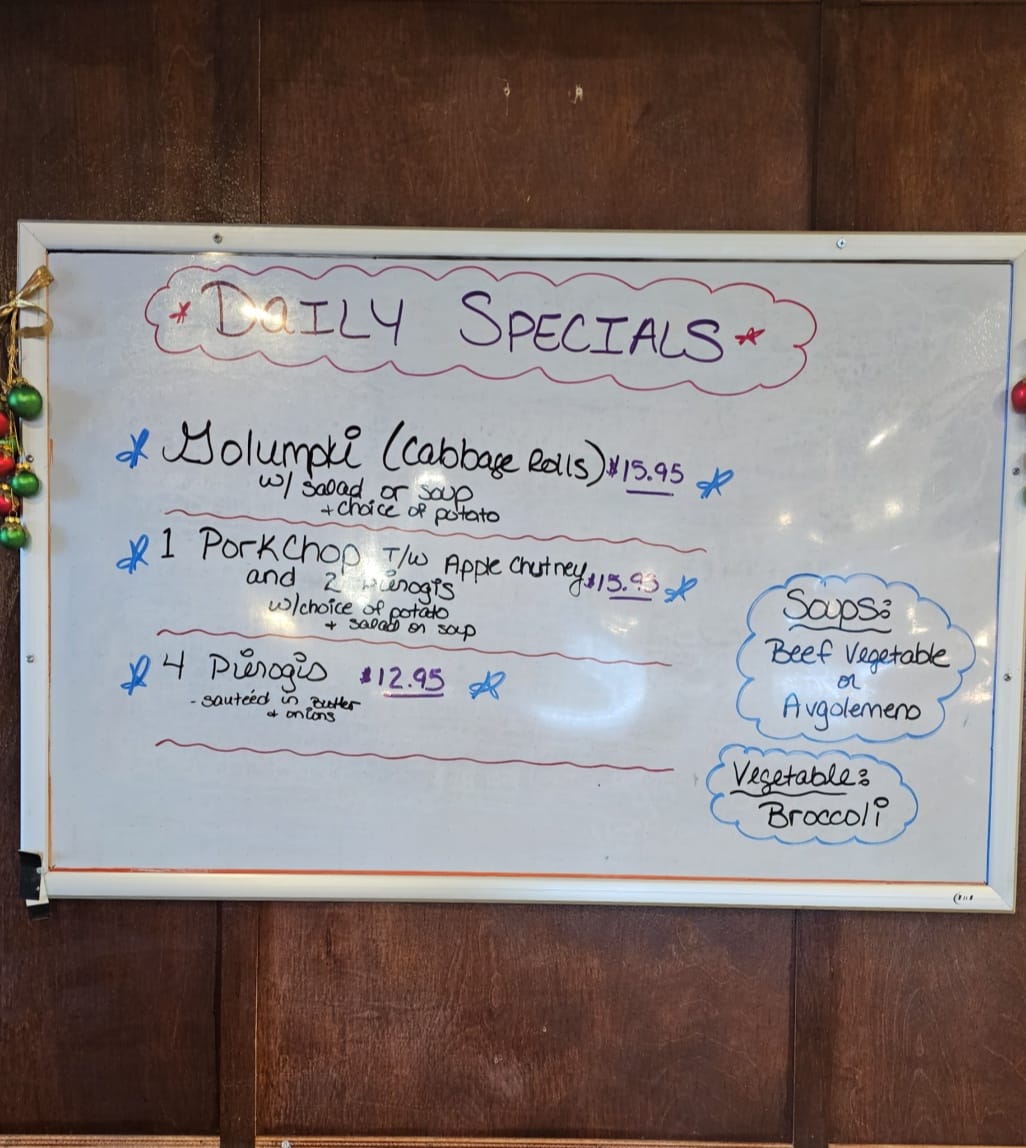 DAILY SPECIALS
Golumpki (Cabbage Rolls) $15.95
w/ salad or soup
+ choice of potato
1 Pork Chop T/w Apple Chutney $15.95
and 2 Pierogis
w/choice of potato
+ salad or soup
4 Pierogis $12.95
- sauteéd in Butter
+ onions
Soups:
Beef Vegetable
or
Avgolemeno
Vegetable:
Broccoli